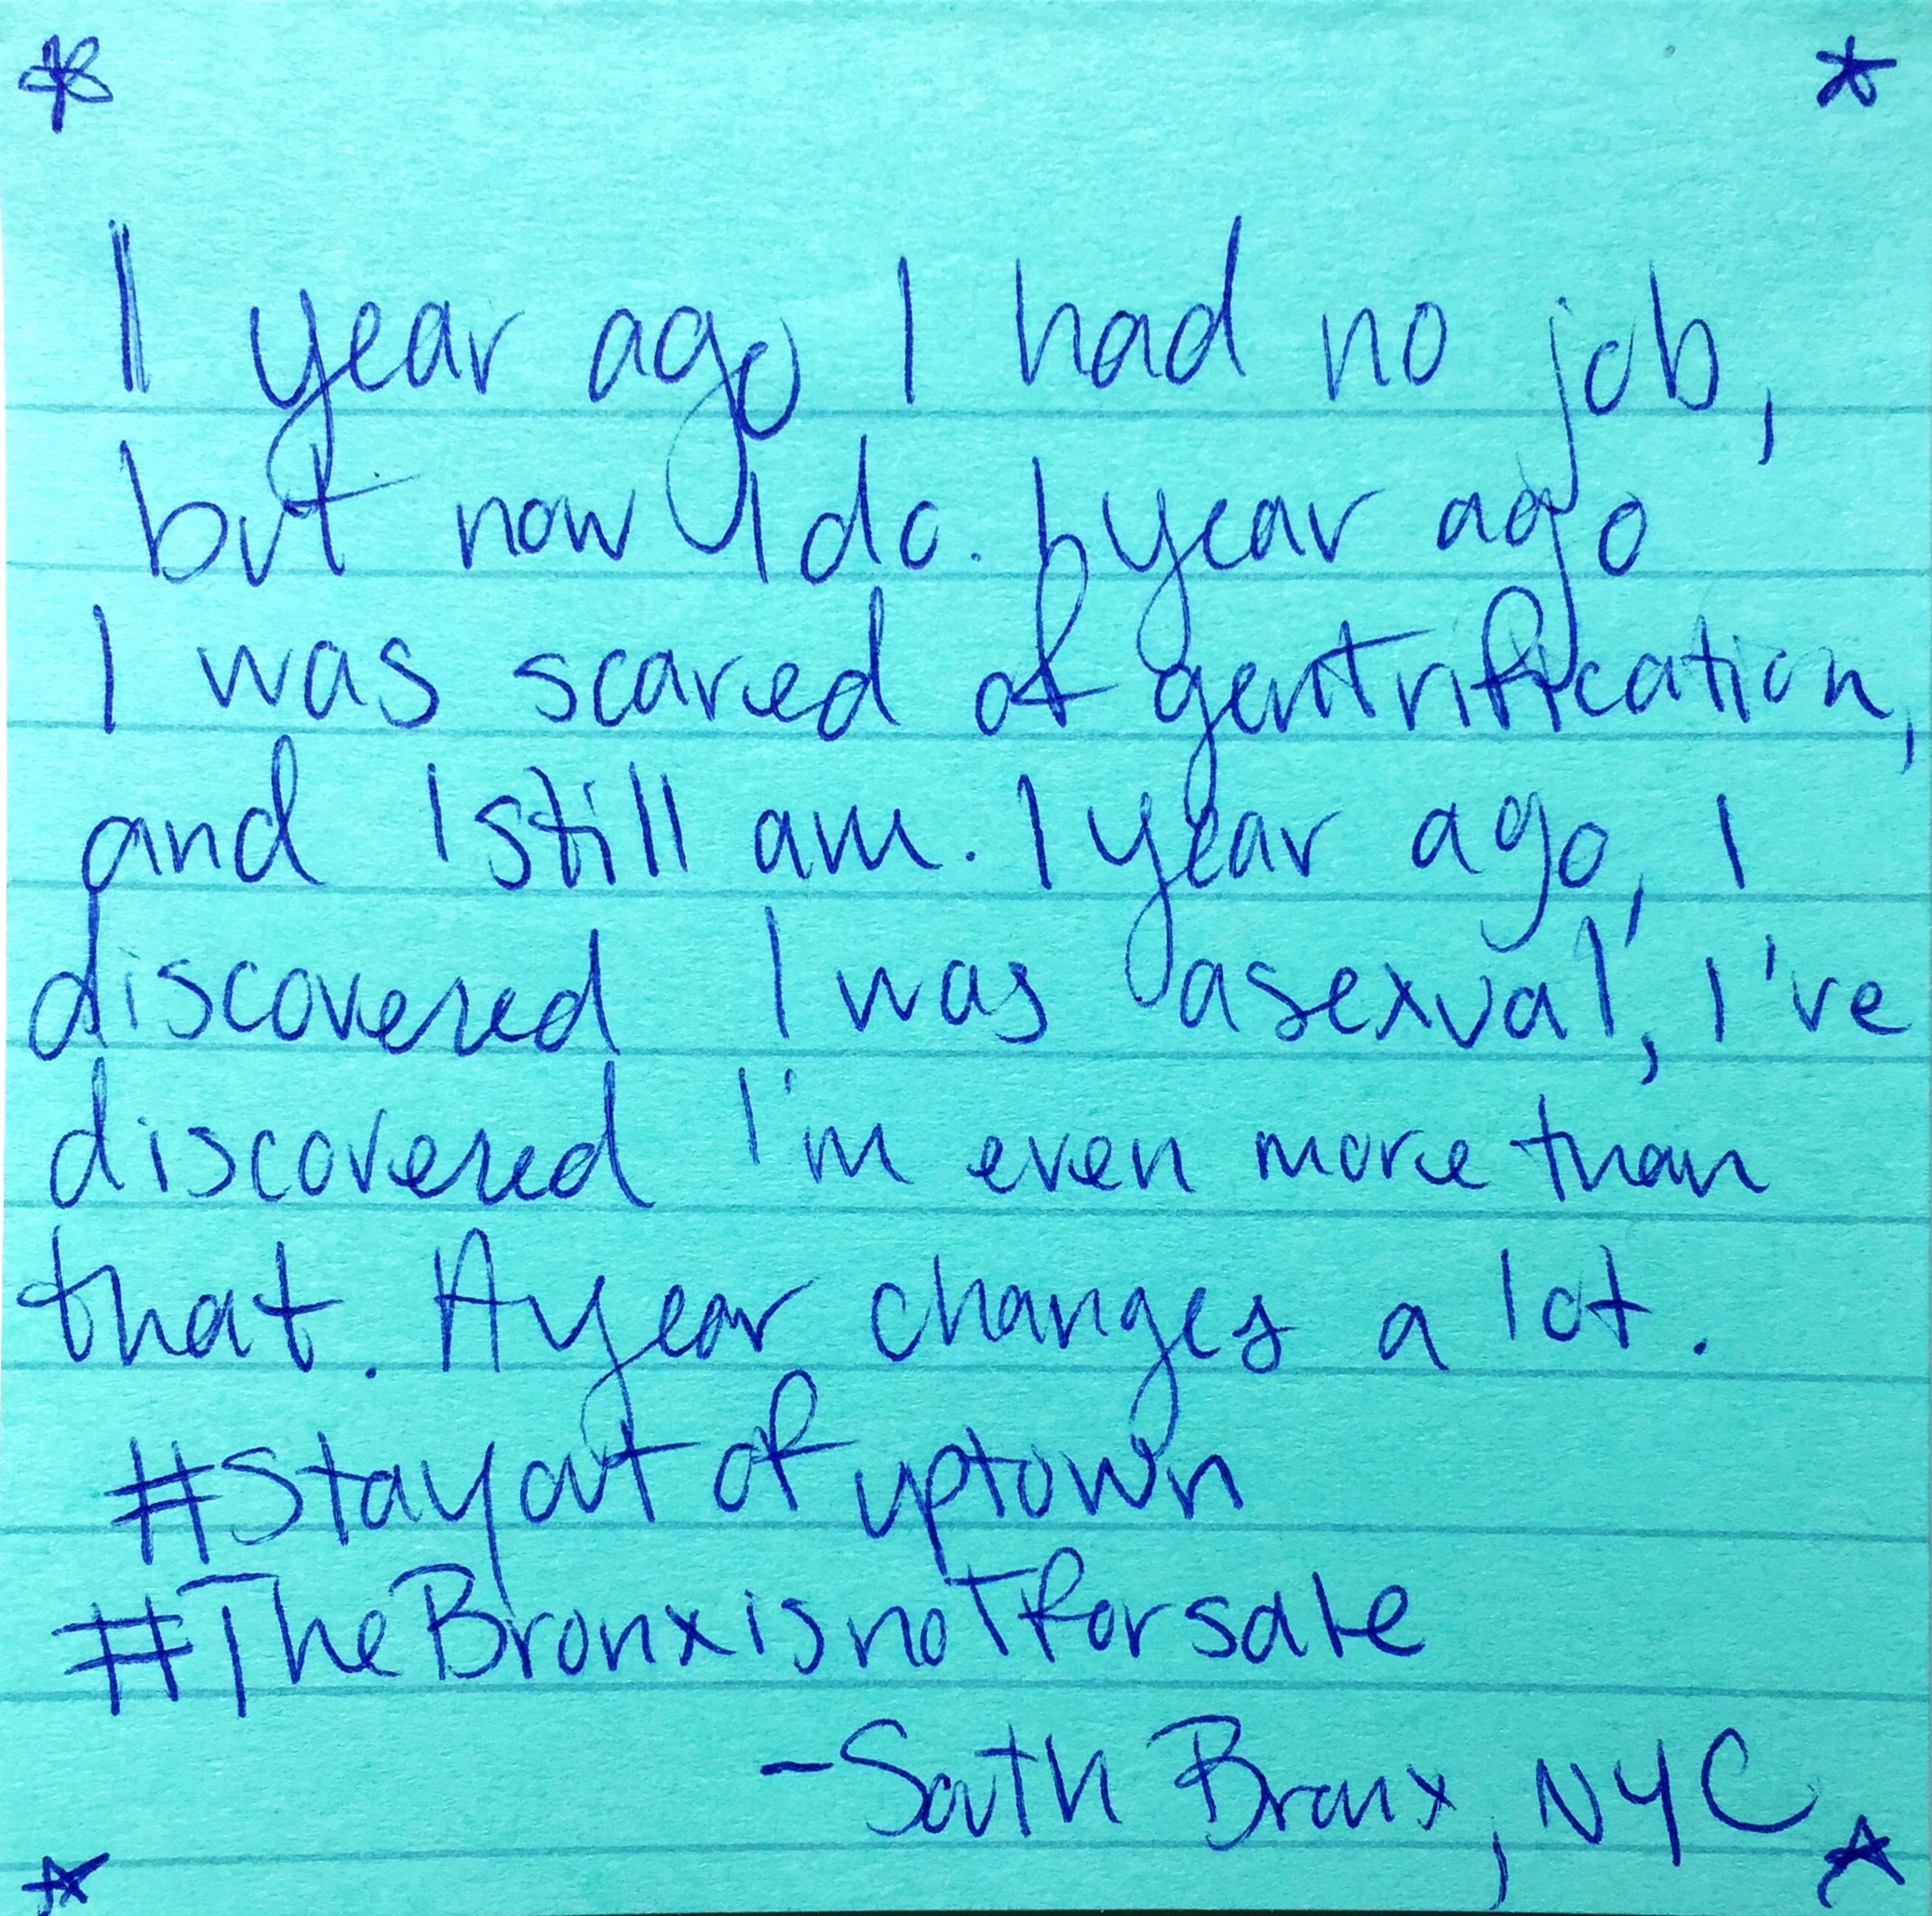 1 year ago I had no job,
but now I do. 1 year ago
I was scared of gentrification,
and I still am. 1 year ago, I
discovered I was asexual, I've
discovered I'm even more than
that. A year changes a lot.
#Stayout of uptown
#TheBronxisnotforsale
-South Bronx, NYC